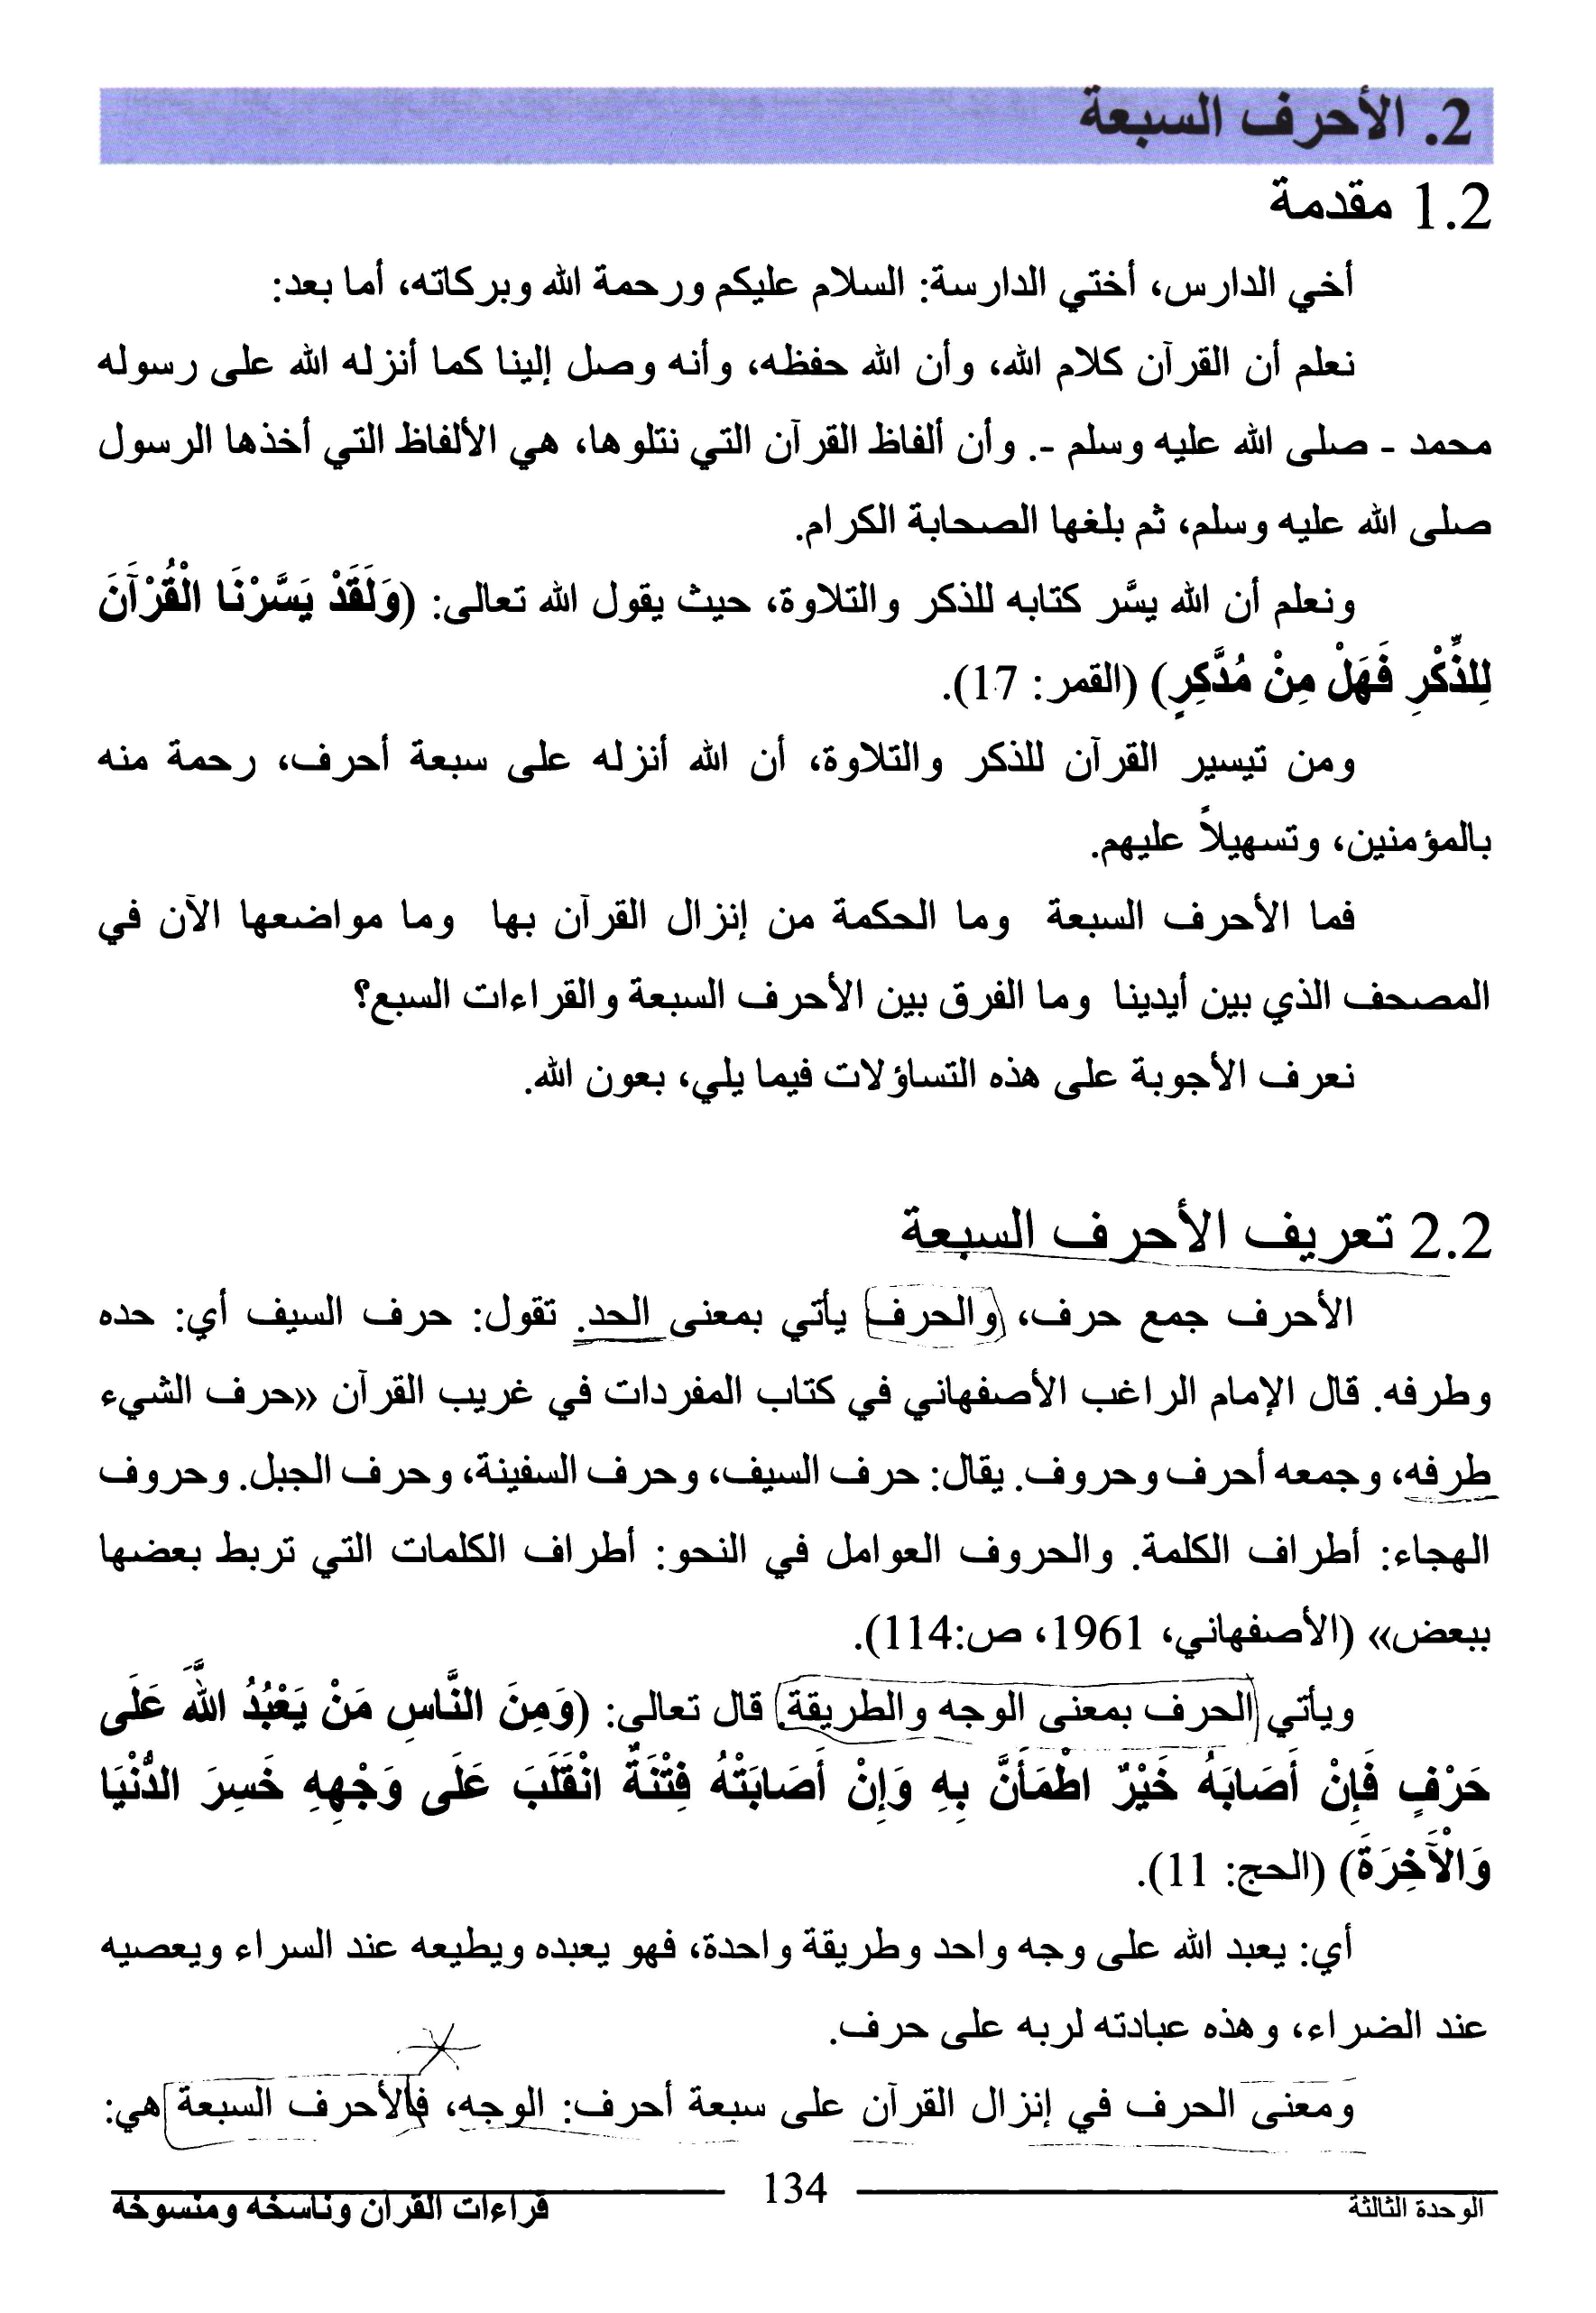 2. الأحرف السبعة
1.2 مقدمة
أخي الدارس، أختي الدارسة: السلام عليكم ورحمة الله وبركاته، أما بعد:
نعلم أن القرآن كلام الله، وأن الله حفظه، وأنه وصل إلينا كما أنزله الله على رسوله
محمد - صلى الله عليه وسلم -. وأن ألفاظ القرآن التي نتلوها، هي الألفاظ التي أخذها الرسول
صلى الله عليه وسلم، ثم بلغها الصحابة الكرام.
ونعلم أن الله يسَّر كتابه للذكر والتلاوة، حيث يقول الله تعالى: (وَلَقَدْ يَسَّرْنَا الْقُرْآنَ
لِلذِّكْرِ فَهَلْ مِنْ مُدَّكِرٍ) (القمر: 17).
ومن تيسير القرآن للذكر والتلاوة، أن الله أنزله على سبعة أحرف، رحمة منه
بالمؤمنين، وتسهيلاً عليهم.
فما الأحرف السبعة وما الحكمة من إنزال القرآن بها وما مواضعها الآن في
المصحف الذي بين أيدينا وما الفرق بين الأحرف السبعة والقراءات السبع؟
نعرف الأجوبة على هذه التساؤلات فيما يلي، بعون الله.
2.2 تعريف الأحرف السبعة
الأحرف جمع حرف، والحرف يأتي بمعنى الحد. تقول: حرف السيف أي: حده
وطرفه. قال الإمام الراغب الأصفهاني في كتاب المفردات في غريب القرآن «حرف الشيء
طرفه، وجمعه أحرف وحروف. يقال: حرف السيف، وحرف السفينة، وحرف الجبل. وحروف
الهجاء: أطراف الكلمة. والحروف العوامل في النحو: أطراف الكلمات التي تربط بعضها
ببعض» (الأصفهاني، 1961، ص:114).
ويأتي الحرف بمعنى الوجه والطريقة. قال تعالى: (وَمِنَ النَّاسِ مَنْ يَعْبُدُ اللَّهَ عَلَى
حَرْفٍ فَإِنْ أَصَابَهُ خَيْرٌ اطْمَأَنَّ بِهِ وَإِنْ أَصَابَتْهُ فِتْنَةٌ انْقَلَبَ عَلَى وَجْهِهِ خَسِرَ الدُّنْيَا
وَالْآخِرَةَ) (الحج: 11).
أي: يعبد الله على وجه واحد وطريقة واحدة، فهو يعبده ويطيعه عند السراء ويعصيه
عند الضراء، وهذه عبادته لربه على حرف.
ومعنى الحرف في إنزال القرآن على سبعة أحرف: الوجه، فالأحرف السبعة هي:
الوحدة الثالثة 134 قراءات القرآن وناسخه ومنسوخه